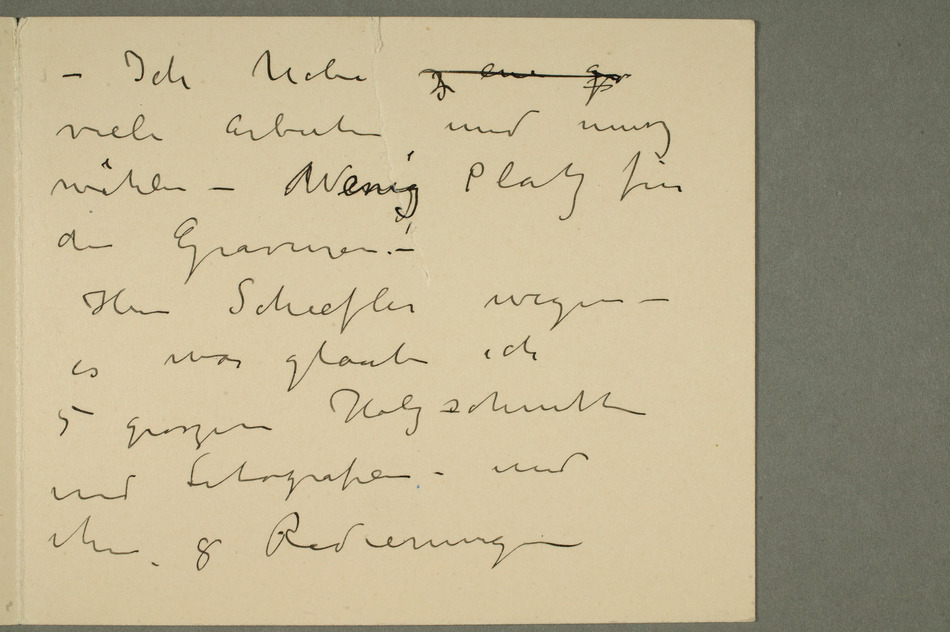 – Ich habe
viele arbeiten und musz
wählen – Wenig Platz für
die Gravuren. –
Herr Schiefler wegen –
es war glaube ich
5 groszen Holzschnitten
und Litografien – und
8 Radierungen